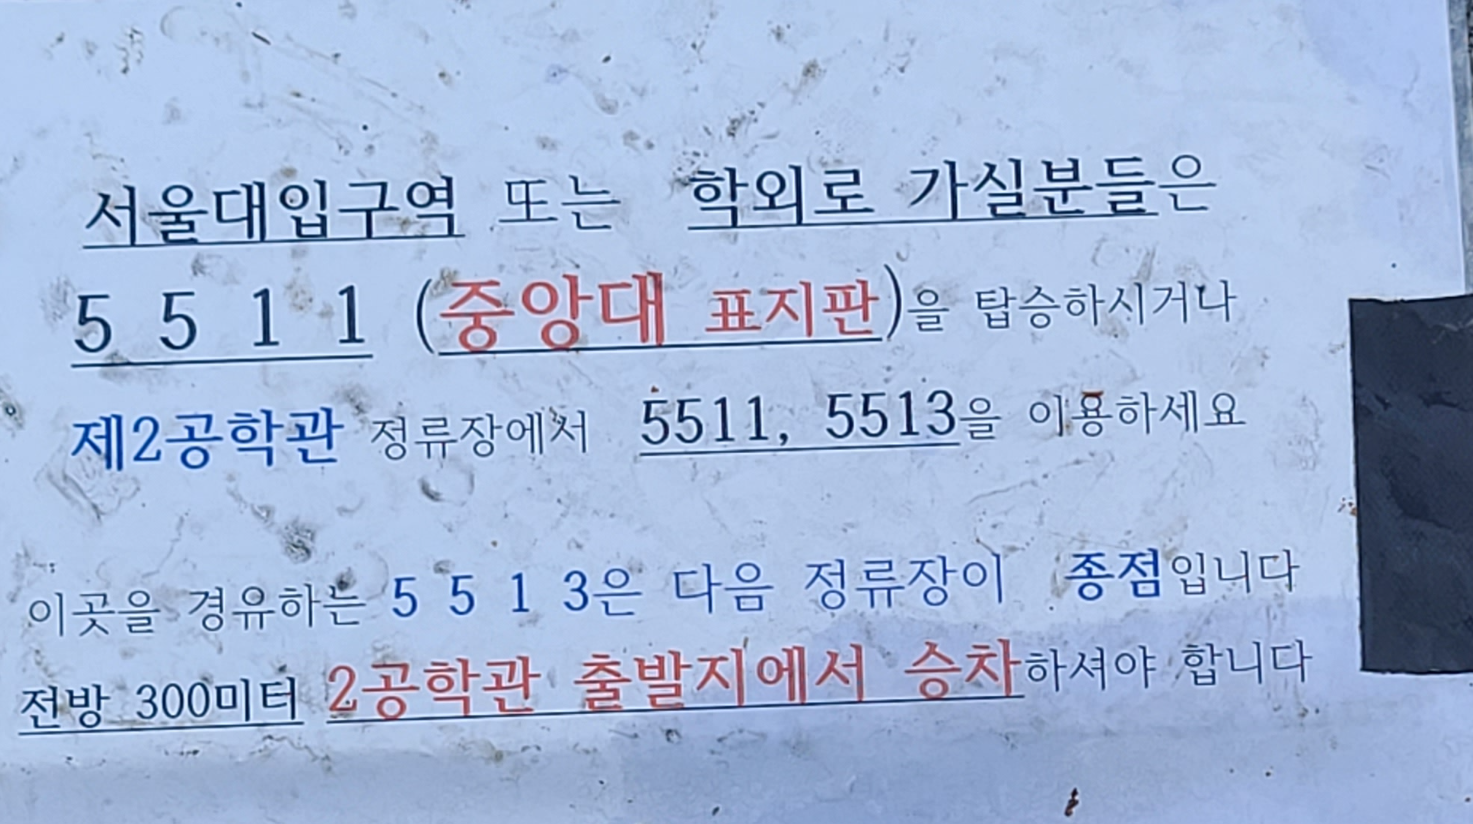 서울대입구역 또는 학외로 가실분들은
5 5 1 1 (중앙대 표지판)을 탑승하시거나
제2공학관 정류장에서 5511, 5513을 이용하세요
이곳을 경유하는 5 5 1 3은 다음 정류장이 종점입니다
전방 300미터 2공학관 출발지에서 승차하셔야 합니다